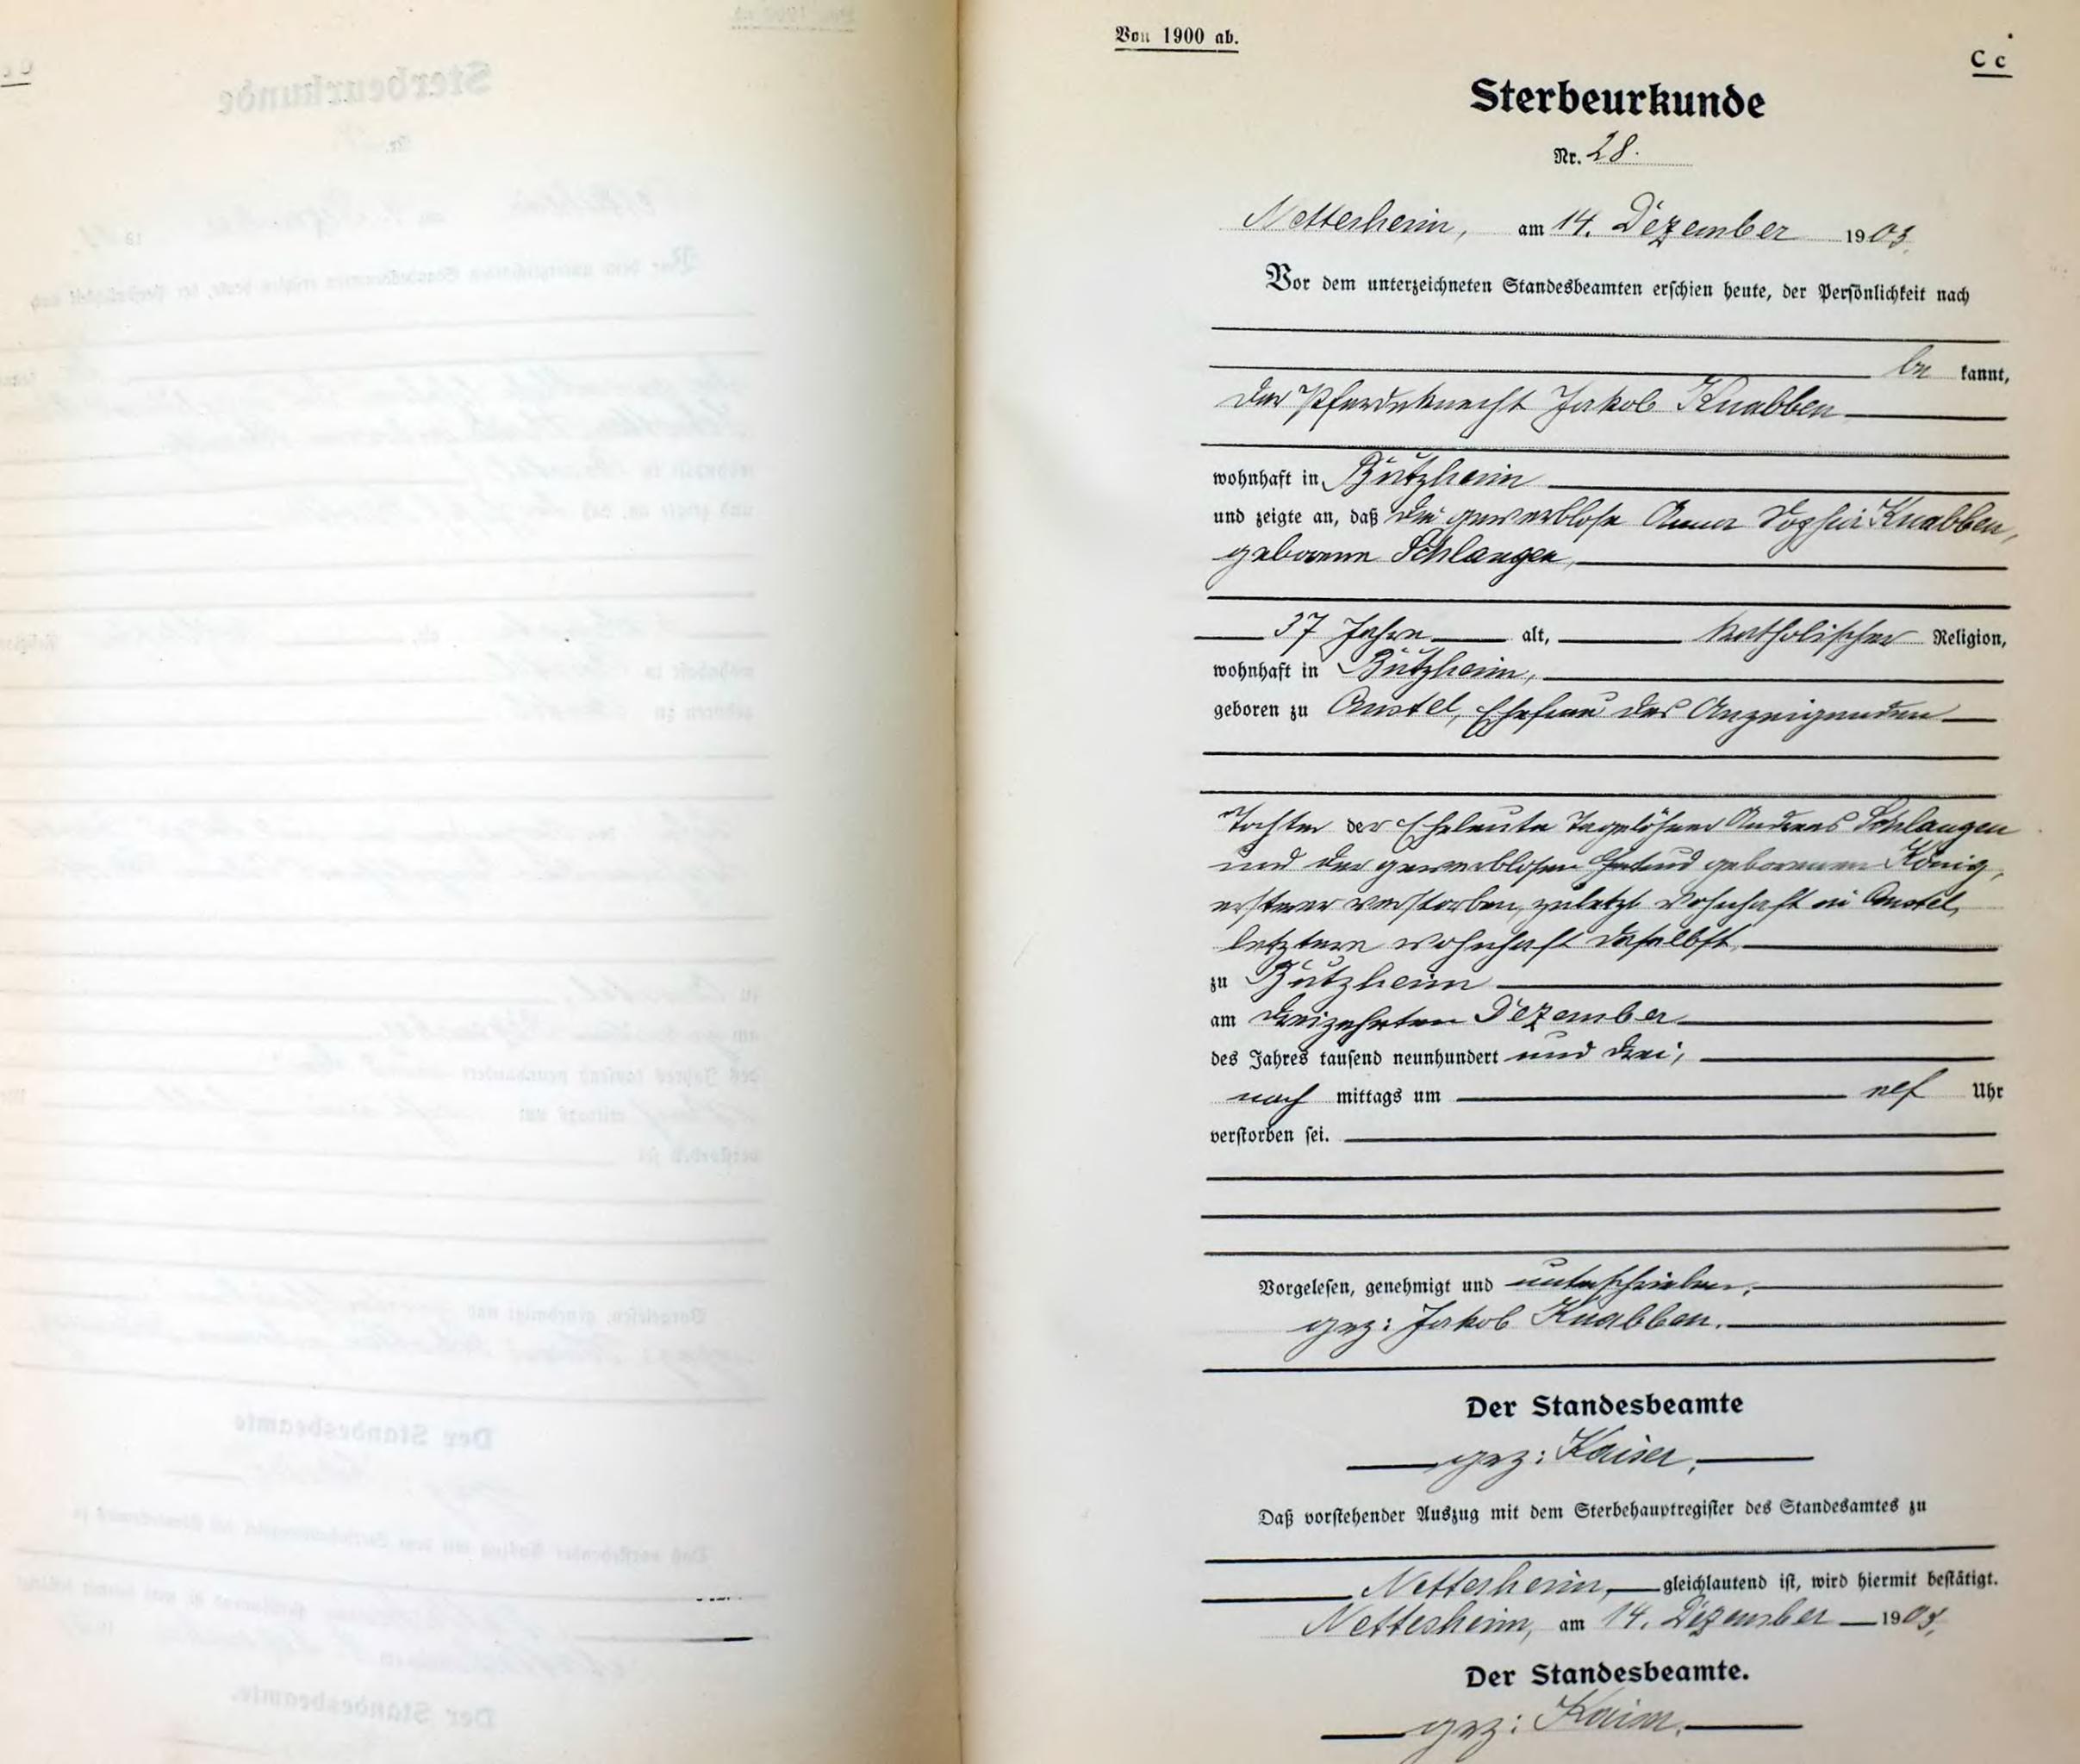 Von 1900 ab.
C c
Sterbeurkunde
Nr. 28.
Nettesheim, am 14. Dezember 1903.
Vor dem unterzeichneten Standesbeamten erschien heute, der Persönlichkeit nach
be kannt,
der Pferdeknecht Jakob Knabben
wohnhaft in Bützheim
und zeigte an, daß die gewerblose Anna Sophia Knabben,
geborene Schlangen,
37 Jahre alt, katholischer Religion,
wohnhaft in Bützheim,
geboren zu Anstel, Ehefrau des Anzeigenden
Tochter der Eheleute Tagelöhner Andreas Schlangen
und der gewerblosen Gertrud geborenen König,
ersterer verstorben, zuletzt wohnhaft in Anstel,
letztere wohnhaft daselbst,
zu Bützheim
am dreizehnten Dezember
des Jahres tausend neunhundert und drei,
nach mittags um elf Uhr
verstorben sei.
Vorgelesen, genehmigt und unterschrieben.
gez: Jakob Knabben.
Der Standesbeamte
gez: Kaiser.
Daß vorstehender Auszug mit dem Sterbehauptregister des Standesamtes zu
Nettesheim, gleichlautend ist, wird hiermit bestätigt.
Nettesheim, am 14. Dezember 1903.
Der Standesbeamte.
gez: Kaiser.